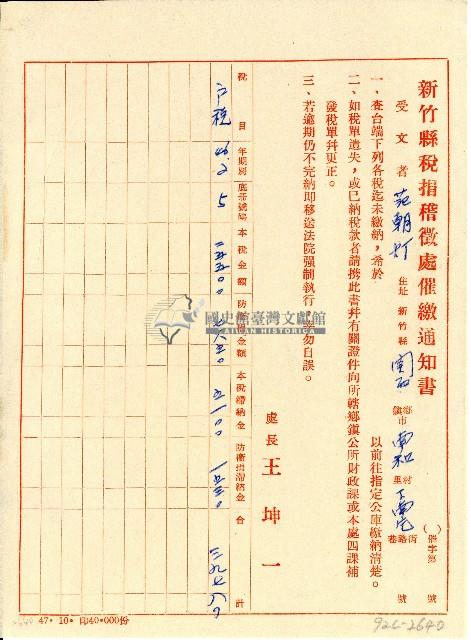 新竹縣稅捐稽徵處催繳通知書
( )催字第 號
受文者 范朝灯 住址 新竹縣 關西 鄉鎮市 南和 村里 街路巷 號
一、查台端下列各稅迄未繳納,希於 以前往指定公庫繳納清楚。
二、如稅單遺失,或已納稅款者請携此書幷有關證件向所轄鄉鎮公所財政課或本處四課補
發稅單幷更正。
三、若逾期仍不完納即移送法院強制執行,幸勿自誤。
處長 王坤一
稅目 年期別 底冊號碼 本稅金額 防衛捐金額 本稅滯納金 防衛捐滯納金 合計
戶稅 46.2 5 二五五〇〇 七六五〇 五一〇〇 一五三〇 三九七八〇
47·10·印40·000份
926-2640
國史館臺灣文獻館
TAIWAN HISTORICA